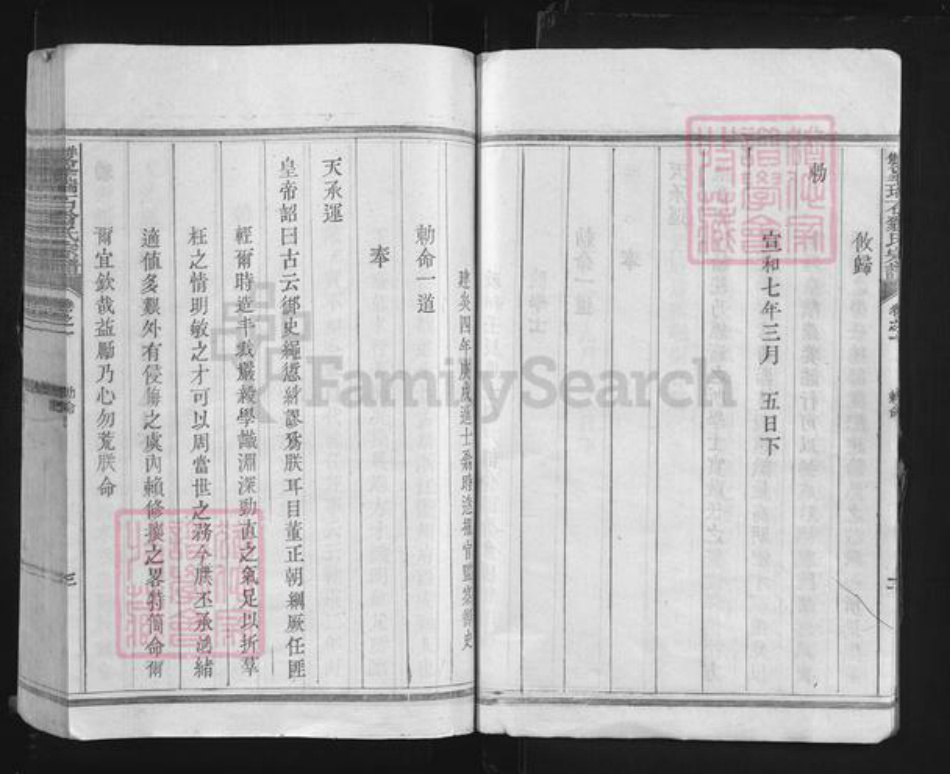 攸歸
勅
宣和七年三月 五日下
建炎四年庚戌進士 時造擢官監察御史
勅命一道
奉
天承運
皇帝詔曰古云御史繩愆糾謬為朕耳目董正朝綱厥任匪
輕爾時造丰裁嚴毅學識淵深勁直之氣足以折羣
枉之情明敏之才可以周當世之務今朕丕承鴻緒
適值多艱外有侵侮之虞內賴修攘之畧特簡命爾
爾宜欽哉益勵乃心勿荒朕命
三
勅命
FamilySearch